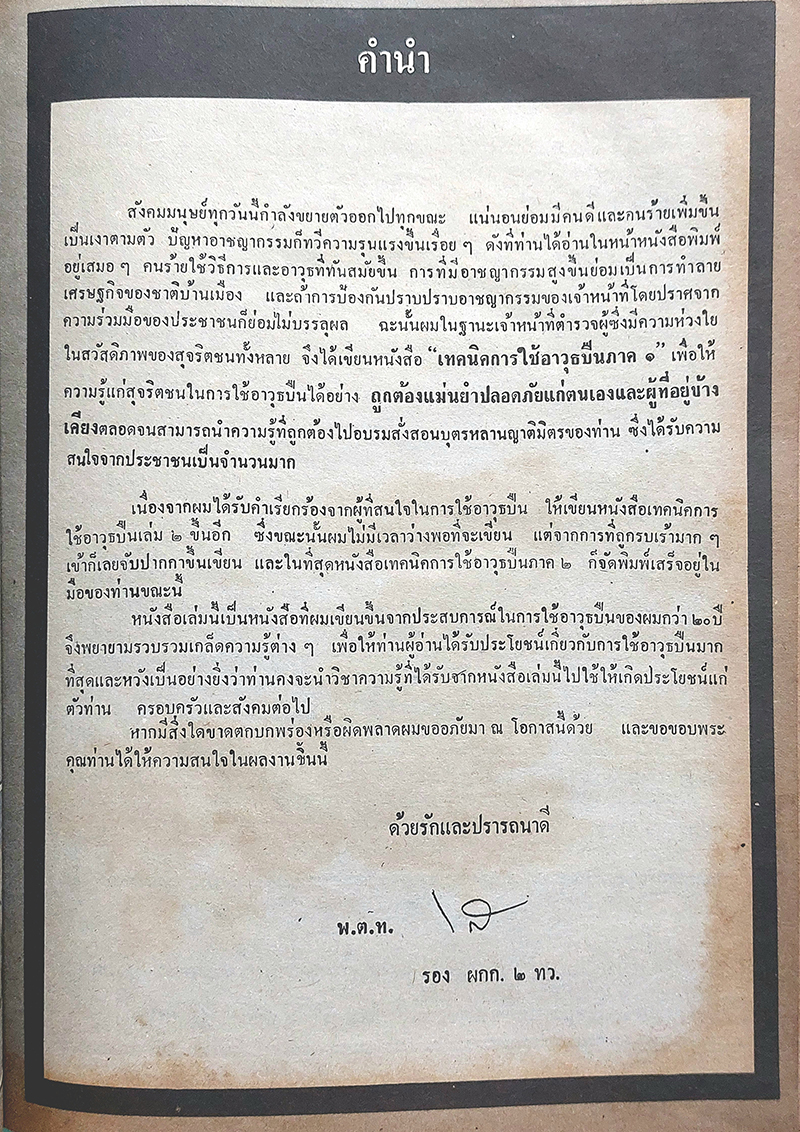 คำนำ
สังคมมนุษย์ทุกวันนี้กำลังขยายตัวออกไปทุกขณะ แน่นอนย่อมมีคนดีและคนร้ายเพิ่มขึ้น
เป็นเงาตามตัว ปัญหาอาชญากรรมก็ทวีความรุนแรงขึ้นเรื่อย ๆ ดังที่ท่านได้อ่านในหน้าหนังสือพิมพ์
อยู่เสมอ ๆ คนร้ายใช้วิธีการและอาวุธที่ทันสมัยขึ้น การที่มีอาชญากรรมสูงขึ้นย่อมเป็นการทำลาย
เศรษฐกิจของชาติบ้านเมือง และถ้าการป้องกันปราบปราบอาชญากรรมของเจ้าหน้าที่โดยปราศจาก
ความร่วมมือของประชาชนก็ย่อมไม่บรรลุผล ฉะนั้นผมในฐานะเจ้าหน้าที่ตำรวจผู้ซึ่งมีความห่วงใย
ในสวัสดิภาพของสุจริตชนทั้งหลาย จึงได้เขียนหนังสือ “เทคนิคการใช้อาวุธปืนภาค ๑” เพื่อให้
ความรู้แก่สุจริตชนในการใช้อาวุธปืนได้อย่าง ถูกต้องแม่นยำปลอดภัยแก่ตนเองและผู้ที่อยู่ข้าง
เคียงตลอดจนสามารถนำความรู้ที่ถูกต้องไปอบรมสั่งสอนบุตรหลานญาติมิตรของท่าน ซึ่งได้รับความ
สนใจจากประชาชนเป็นจำนวนมาก
เนื่องจากผมได้รับคำเรียกร้องจากผู้ที่สนใจในการใช้อาวุธปืน ให้เขียนหนังสือเทคนิคการ
ใช้อาวุธปืนเล่ม ๒ ขึ้นอีก ซึ่งขณะนั้นผมไม่มีเวลาว่างพอที่จะเขียน แต่จากการที่ถูกรบเร้ามาก ๆ
เข้าก็เลยจับปากกาขึ้นเขียน และในที่สุดหนังสือเทคนิคการใช้อาวุธปืนภาค ๒ ก็จัดพิมพ์เสร็จอยู่ใน
มือของท่านขณะนี้
หนังสือเล่มนี้เป็นหนังสือที่ผมเขียนขึ้นจากประสบการณ์ในการใช้อาวุธปืนของผมกว่า ๒๐ปี
จึงพยายามรวบรวมเกล็ดความรู้ต่าง ๆ เพื่อให้ท่านผู้อ่านได้รับประโยชน์เกี่ยวกับการใช้อาวุธปืนมาก
ที่สุดและหวังเป็นอย่างยิ่งว่าท่านคงจะนำวิชาความรู้ที่ได้รับจากหนังสือเล่มนี้ไปใช้ให้เกิดประโยชน์แก่
ตัวท่าน ครอบครัวและสังคมต่อไป
หากมีสิ่งใดขาดตกบกพร่องหรือผิดพลาดผมขออภัยมา ณ โอกาสนี้ด้วย และขอขอบพระ
คุณท่านได้ให้ความสนใจในผลงานชิ้นนี้
ด้วยรักและปรารถนาดี
พ.ต.ท.
รอง ผกก. ๒ ทว.